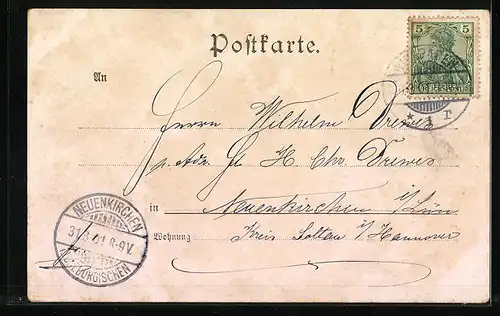 Postkarte.
5 5
An
Herrn Wilhelm Drewes
p. Adr. H. Chr. Drewes
in Neuenkirchen i/Lün
Wohnung Kreis Soltau i/Hannover
NEUENKIRCHEN
31.3.01.8-9V.
* 1 r